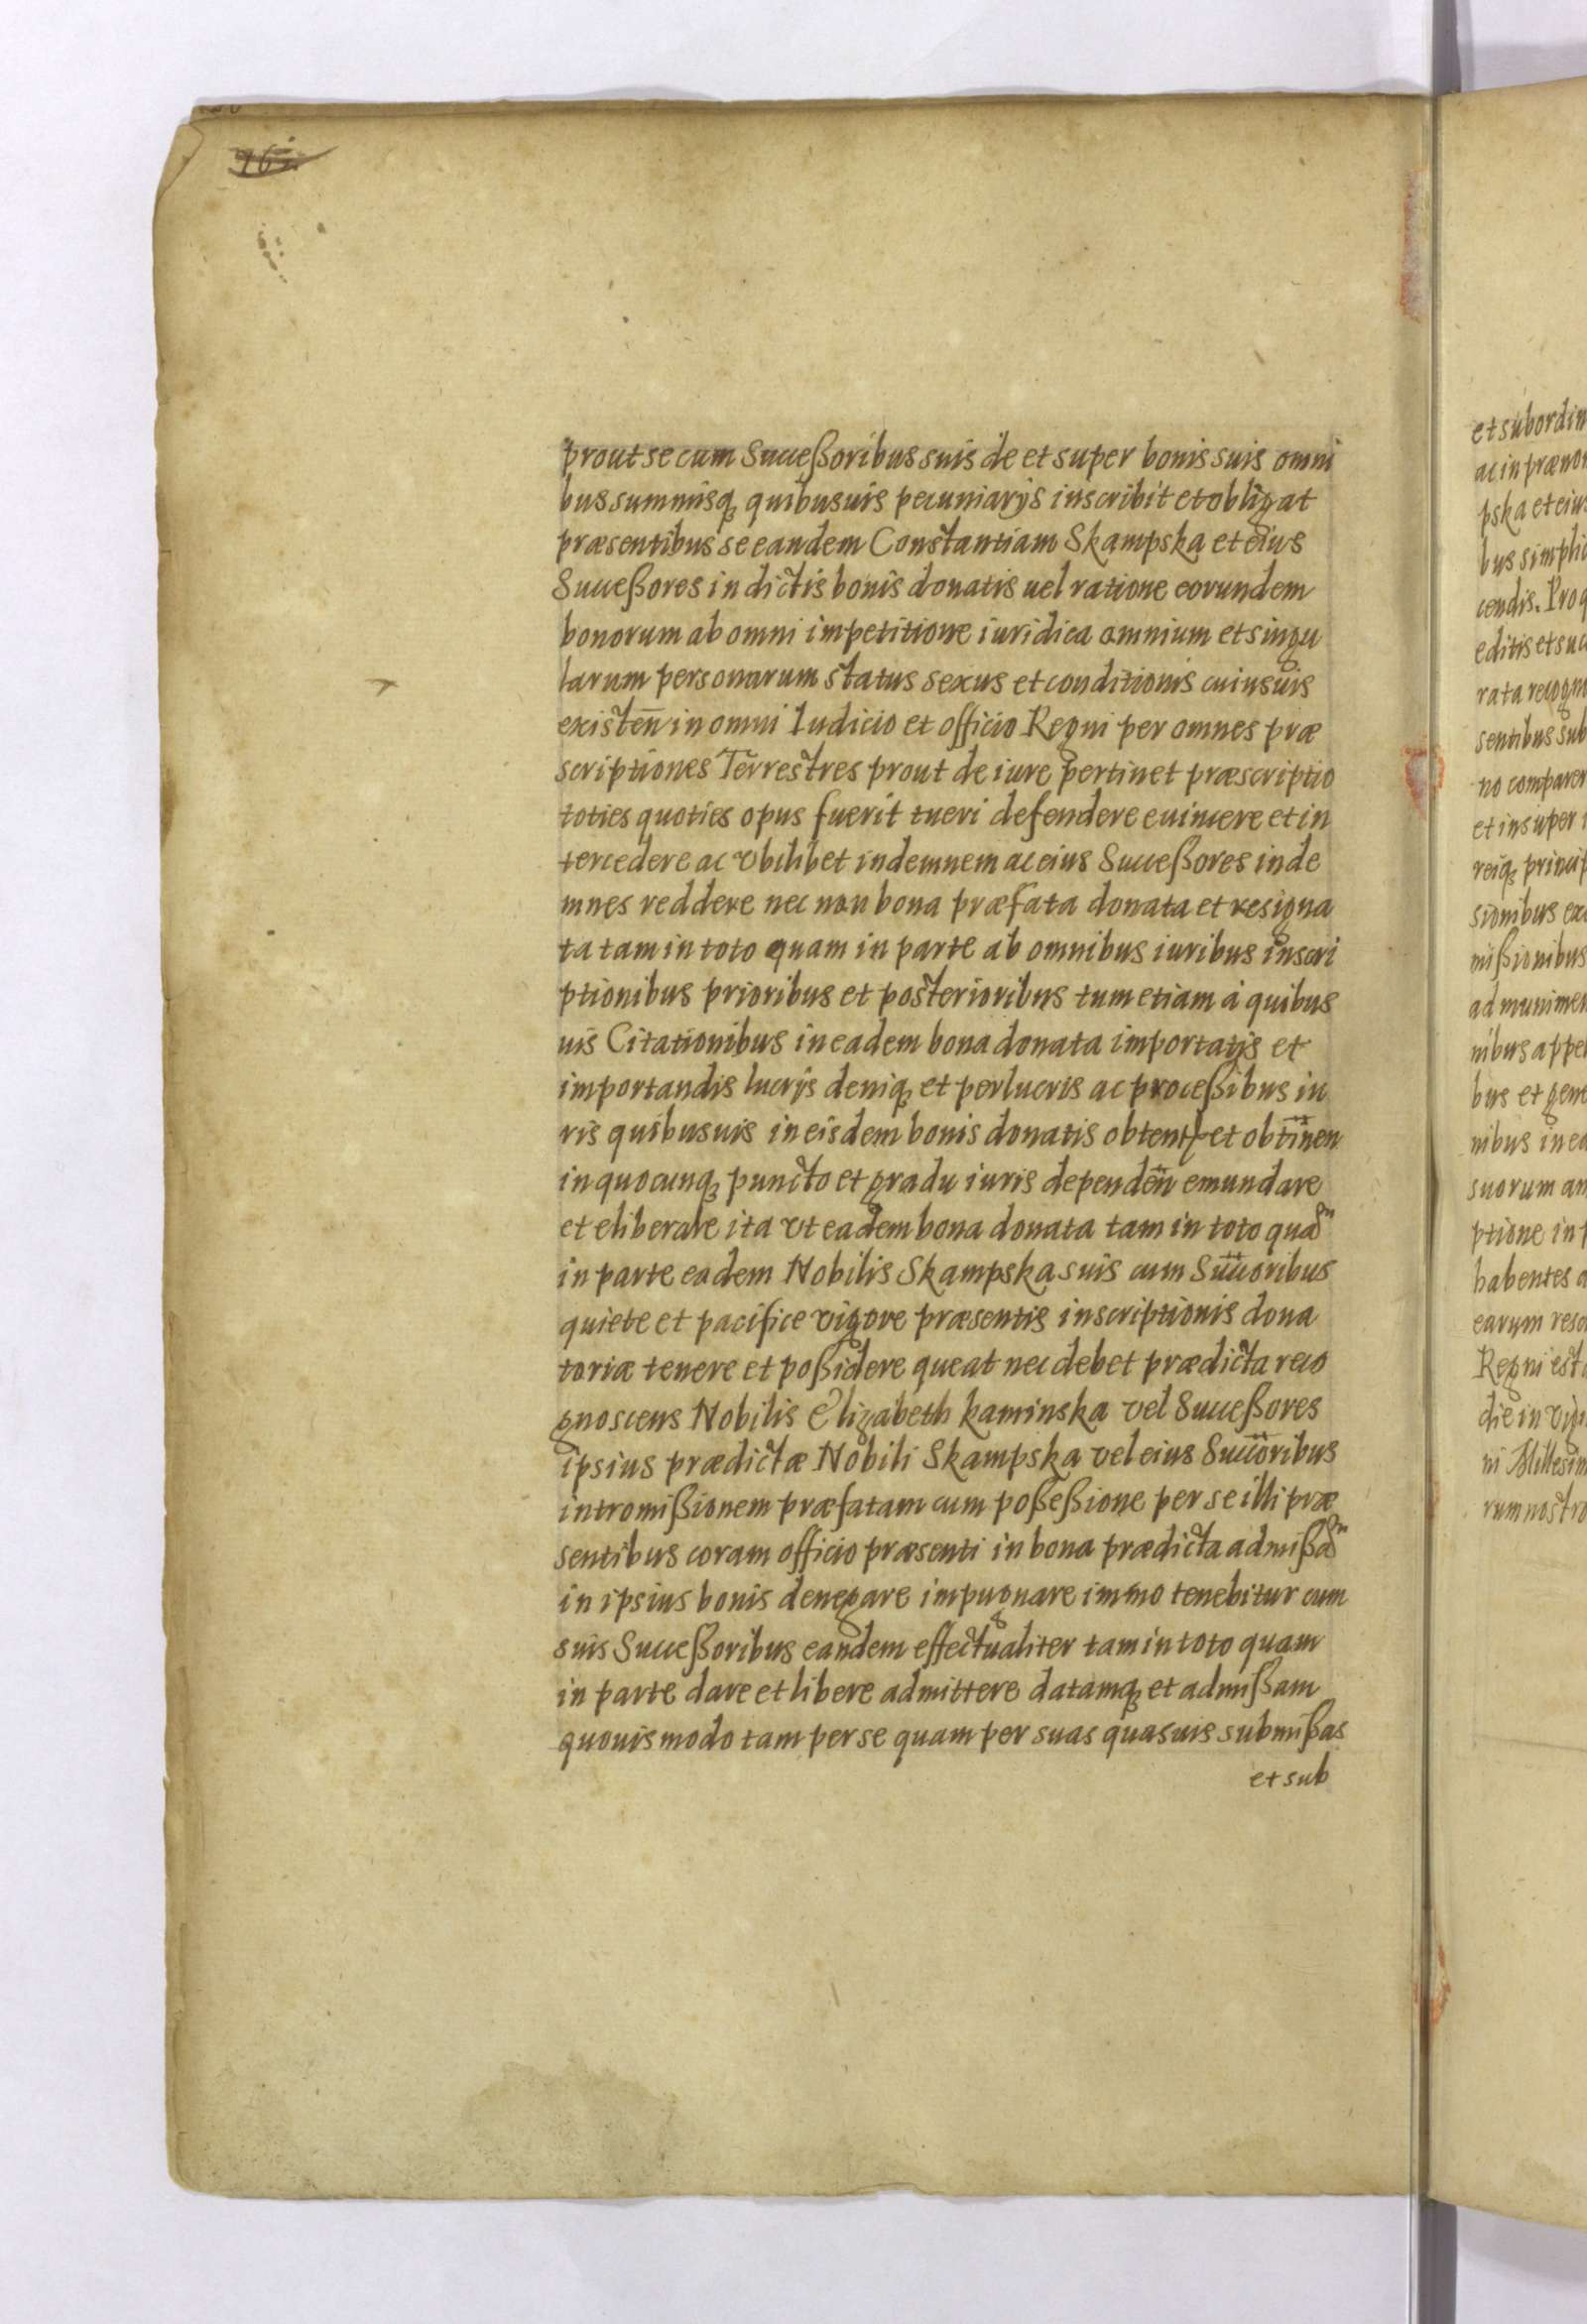 prout se cum Succeßoribus suis de et super bonis suis omni
bus summisq, quibusuis pecuniarijs inscribit et obligat
præsentibus se eandem Constantiam Skampska et eius
Succeßores in dictis bonis donatis uel ratione eorundem
bonorum ab omni impetitione iuridica omnium et singu
larum personarum status sexus et conditionis cuiusuis
existen̄ in omni Iudicio et officio Regni per omnes præ
scriptiones Terrestres prout de iure pertinet præscriptio
toties quoties opus fuerit tueri defendere euincere et in
tercedere ac vbilibet indemnem ac eius Succeßores inde
mnes reddere nec non bona præfata donata et resigna
ta tam in toto quam in parte ab omnibus iuribus inscri
ptionibus prioribus et posterioribus tum etiam à quibus
uis Citationibus in eadem bona donata importatis et
importandis lucrijs deniq, et perlucris ac proceßibus iu
ris quibusuis in eisdem bonis donatis obtent et obtinen
in quocunq, puncto et gradu iuris dependen̄ emundare
et eliberare ita vt eadem bona donata tam in toto quam
in parte eadem Nobilis Skampska suis cum Succoribus
quiete et pacifice vigore præsentis inscriptionis dona
toriæ tenere et poßidere queat nec debet prædicta reco
gnoscens Nobilis Elizabeth kaminska vel Succeßores
ipsius prædictæ Nobili Skampska vel eius Succoribus
intromißionem præfatam cum poßeßione per se illi præ
sentibus coram officio præsenti in bona prædicta admißam
in ipsius bonis denegare impugnare immo tenebitur cum
suis Succeßoribus eandem effectualiter tam in toto quam
in parte dare et libere admittere datamq, et admißam
quouis modo tam per se quam per suas quasuis submißas
et sub
et subordin
ac in præno
pska et eius
bus simplic
cendis. Pro q
editis et suc
rata recogno
sentibus sub
no comparen
et insuper i
reiq, princip
sionibus exc
mißionibus
ad munimen
nibus appel
bus et gene
nibus in ea
suorum am
ptione in p
habentes a
earum reso
Regni est
die in vig
ni Millesim
rum nostro